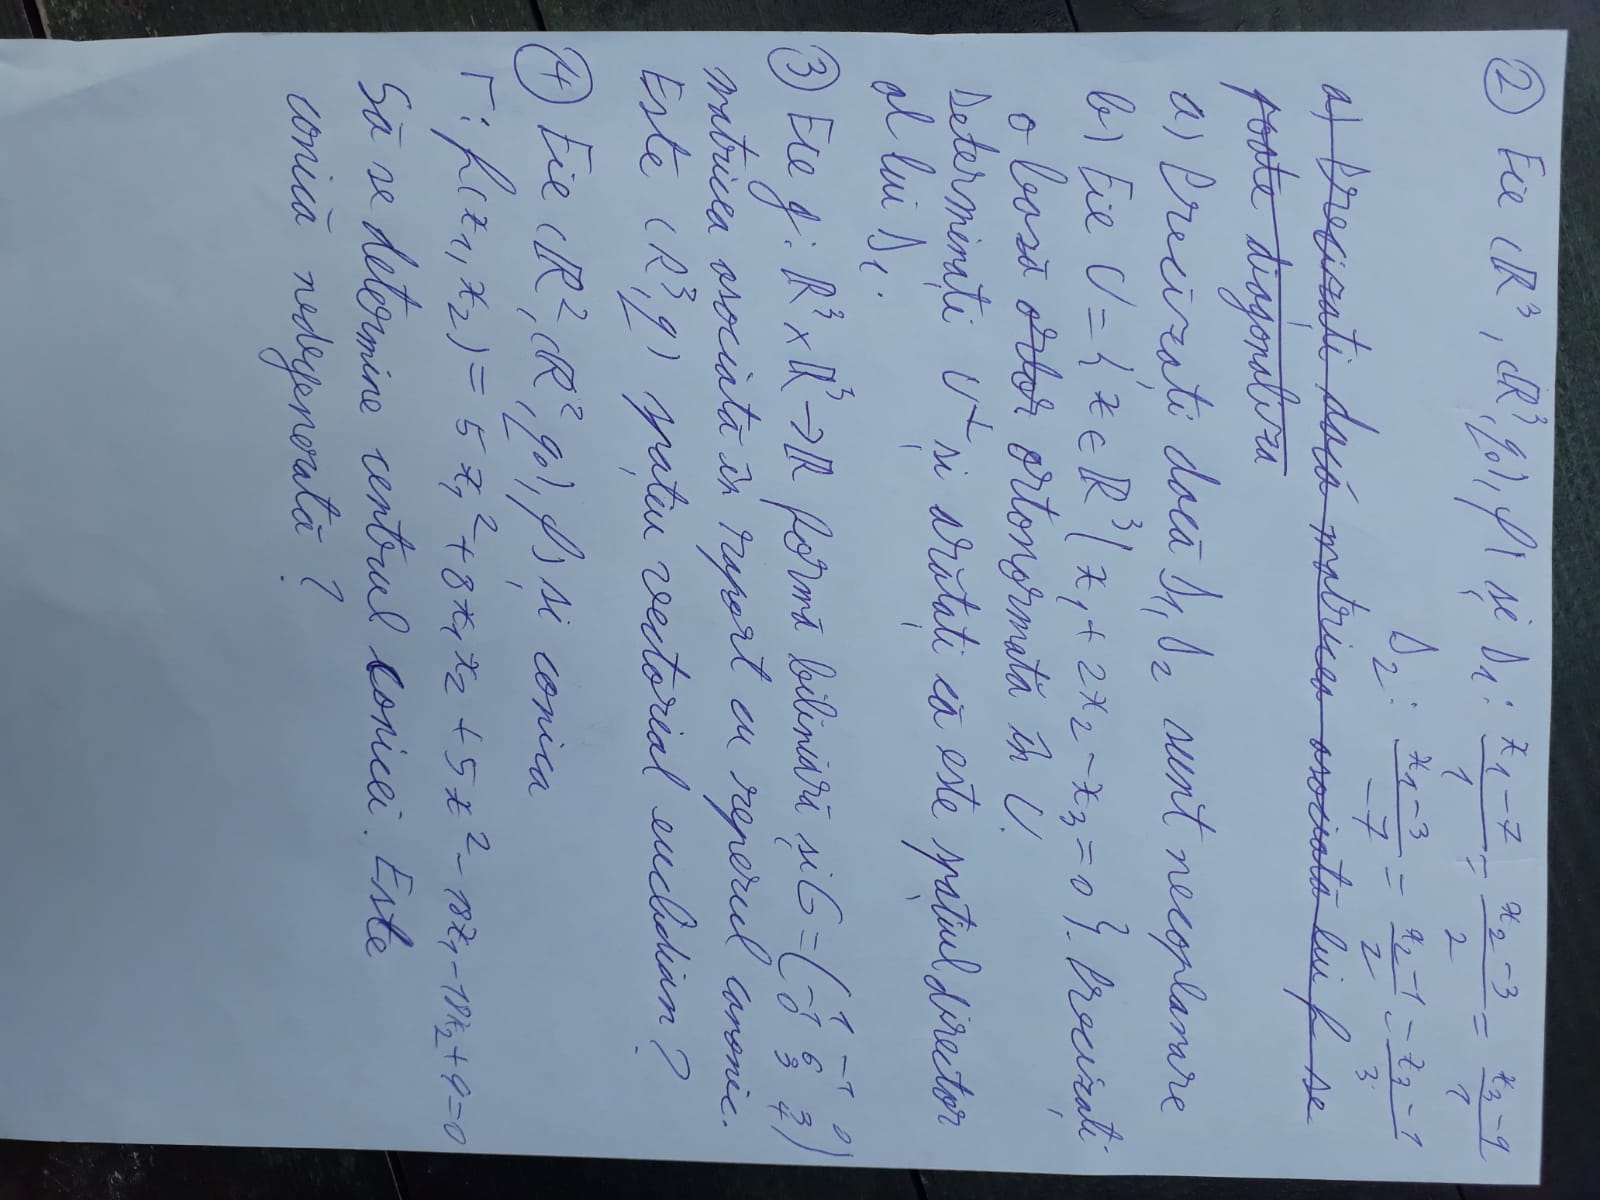 ② Fie (ℝ³, (ℝ³, g₀), φ) și D₁: (x₁-7)/1 = (x₂-3)/2 = (x₃-9)/1
D₂: (x₁-3)/-7 = (x₂-1)/2 = (x₃-1)/3
a) Precizați dacă matricea asociată lui f se
poate diagonaliza
a) Precizați dacă D₁, D₂ sunt necoplanare
b) Fie U = {x ∈ ℝ³ | x₁ + 2x₂ - x₃ = 0}. Precizați
o bază ortor ortonormată în U.
Determinați U⊥ și arătați că este spațiul director
al lui D₁.
③ Fie g: ℝ³ × ℝ³ → ℝ formă biliniară și G = (1 -1 0; -1 6 3; 0 3 4)
matricea asociată în raport cu reperul canonic.
Este (ℝ³, g) spațiu vectorial euclidian?
④ Fie (ℝ², (ℝ², g₀), φ) și conica
Γ: f(x₁, x₂) = 5x₁² + 8x₁x₂ + 5x² - 18x₁ - 18x₂ + 9 = 0
Să se determine centrul conicei. Este
conică nedegenerată?